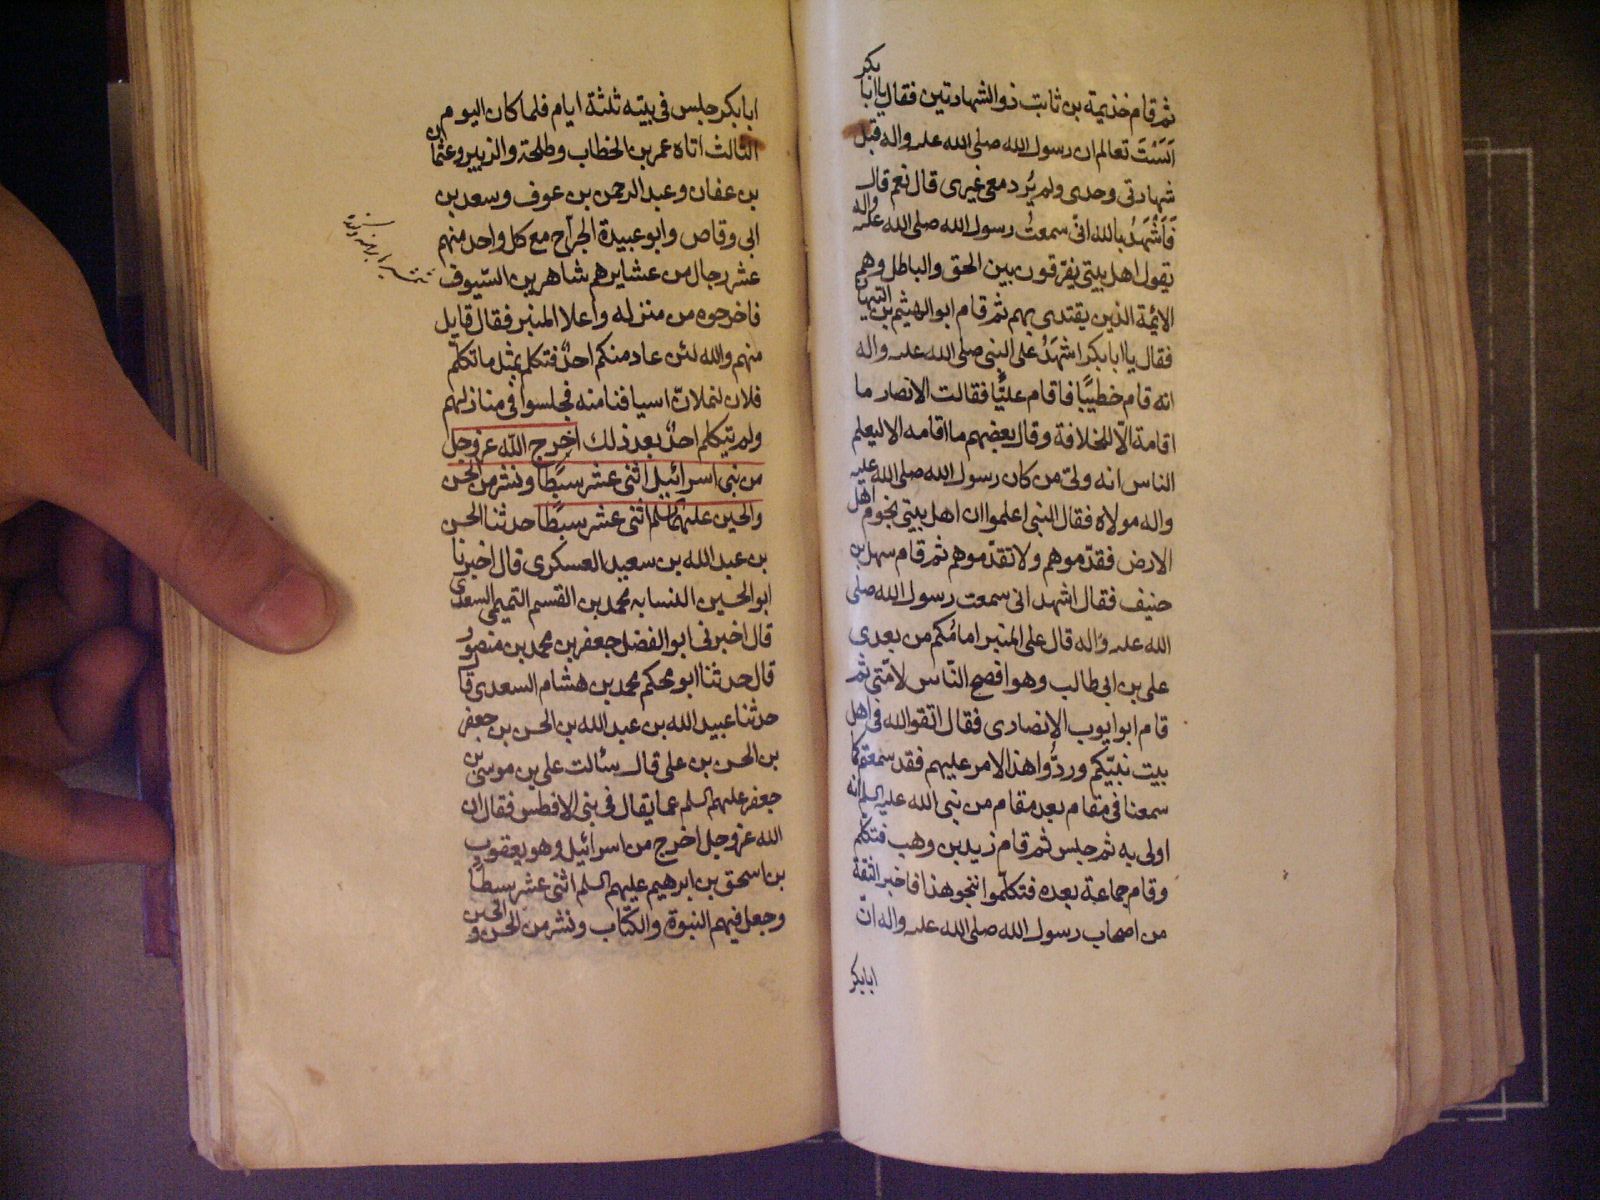 ثم قام خذيمة بن ثابت ذو الشهادتين فقال يا ابا بكر
الست تعالم ان رسول الله صلى الله عليه واله قبل
شهادتى وحدى ولم يُرد معى غيرى قال نعم قال
فَاَشْهَدُ بالله انّى سمعتُ رسول الله صلى الله عليه واله
يقول اهل بيتى يفرّقون بين الحق والباطل وهم
الائمة الذين يقتدى بهم ثم قام ابو الهيثم بن التيهان
فقال يا ابا بكر اشهَدُ على النبى صلى الله عليه واله
انه قام خطيبًا فاقام عليًّا فقالت الانصار ما
اقامة الّا للخلافة وقال بعضهم ما اقامه الا ليعلم
الناس انه ولىّ من كان رسول الله صلى الله عليه
واله مولاه فقال النبى اعلموا ان اهل بيتى نجوم اهل
الارض فقدّموهم ولا تقدّموهم ثم قام سهل بن
حنيف فقال اشهد انى سمعت رسول الله صلى
الله عليه واله قال على المنبر امامُكم من بعدى
على بن ابى طالب وهو افصح النّاس لامّتى ثم
قام ابو ايوب الانصارى فقال اتقوا الله فى اهل
بيت نبيّكم وردُّوا هذا الامر عليهم فقد سمعتم كما
سمعنا فى مقام بعد مقام من نبى الله عليه السلم انه
اولى به ثم جلس ثم قام زيد بن وهب فتكلّم
وقام جماعة بعده فتكلّموا بنحو هذا فاخبر الثقة
من اصحاب رسول الله صلى الله عليه واله انّ
ابابكر
ابابكر جلس فى بيته ثلثة ايام فلما كان اليوم
الثالث اتاه عمر بن الخطاب وطلحة والزبير وعثمان
بن عفان وعبد الرحمن بن عوف وسعد بن
ابى وقاص وابو عبيدة الجرّاح مع كل واحد منهم
عشر رجال من عشايرهم شاهرين السّيوف
فاخرجوه من منزله واعلا المنبر فقال قايل
منهم والله لئن عاد منكم احدٌ فتكلم بمثل ما تكلّم
فلان لنملانّ اسيافنا منه فجلسوا فى منازلهم
ولم يتكلم احدٌ بعد ذلك اخرج الله عز وجل
من بنى اسرائيل اثنى عشر سبطًا ونشر من الحسن
والحسين عليهما السلم اثنى عشر سبطًا حدثنا الحسن
بن عبد الله بن سعيد العسكرى قال اخبرنا
ابو الحسين النسابه محمد بن القسم التميمى السعدى
قال اخبرنى ابو الفضل جعفر بن محمد بن منصور
قال حدثنا ابو محكم محمد بن هشام السعدى قا
حدثنا عبيد الله بن عبد الله بن الحسن بن جعفر
بن الحسن بن على قال سئالت على بن موسى بن
جعفر عليهم السلم عما يقال فى بنى الافطس فقال ان
الله عز وجل اخرج من اسرائيل وهو يعقوب
بن اسحق بن ابرهيم عليهم السلم اثنى عشر سبطًا
وجعل فيهم النبوة والكتاب ونشر من الحسن و